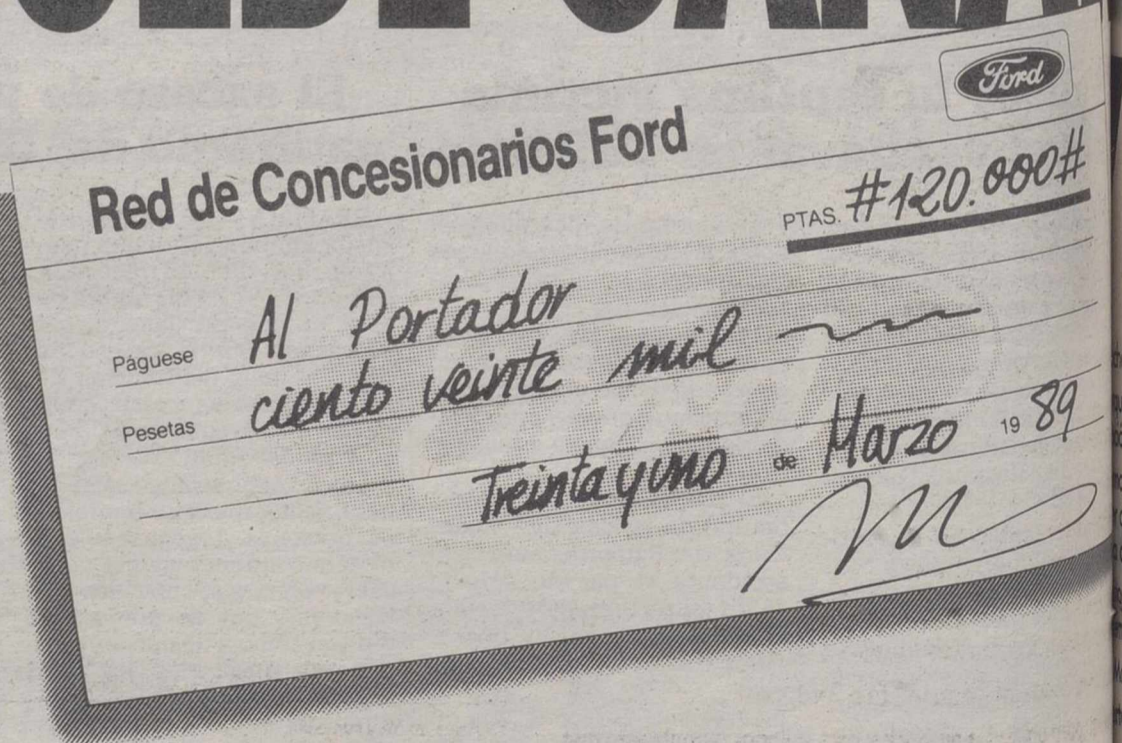 Ford
Red de Concesionarios Ford
PTAS. #120.000#
Páguese Al Portador
Pesetas ciento veinte mil
Treinta y uno de Marzo 19 89